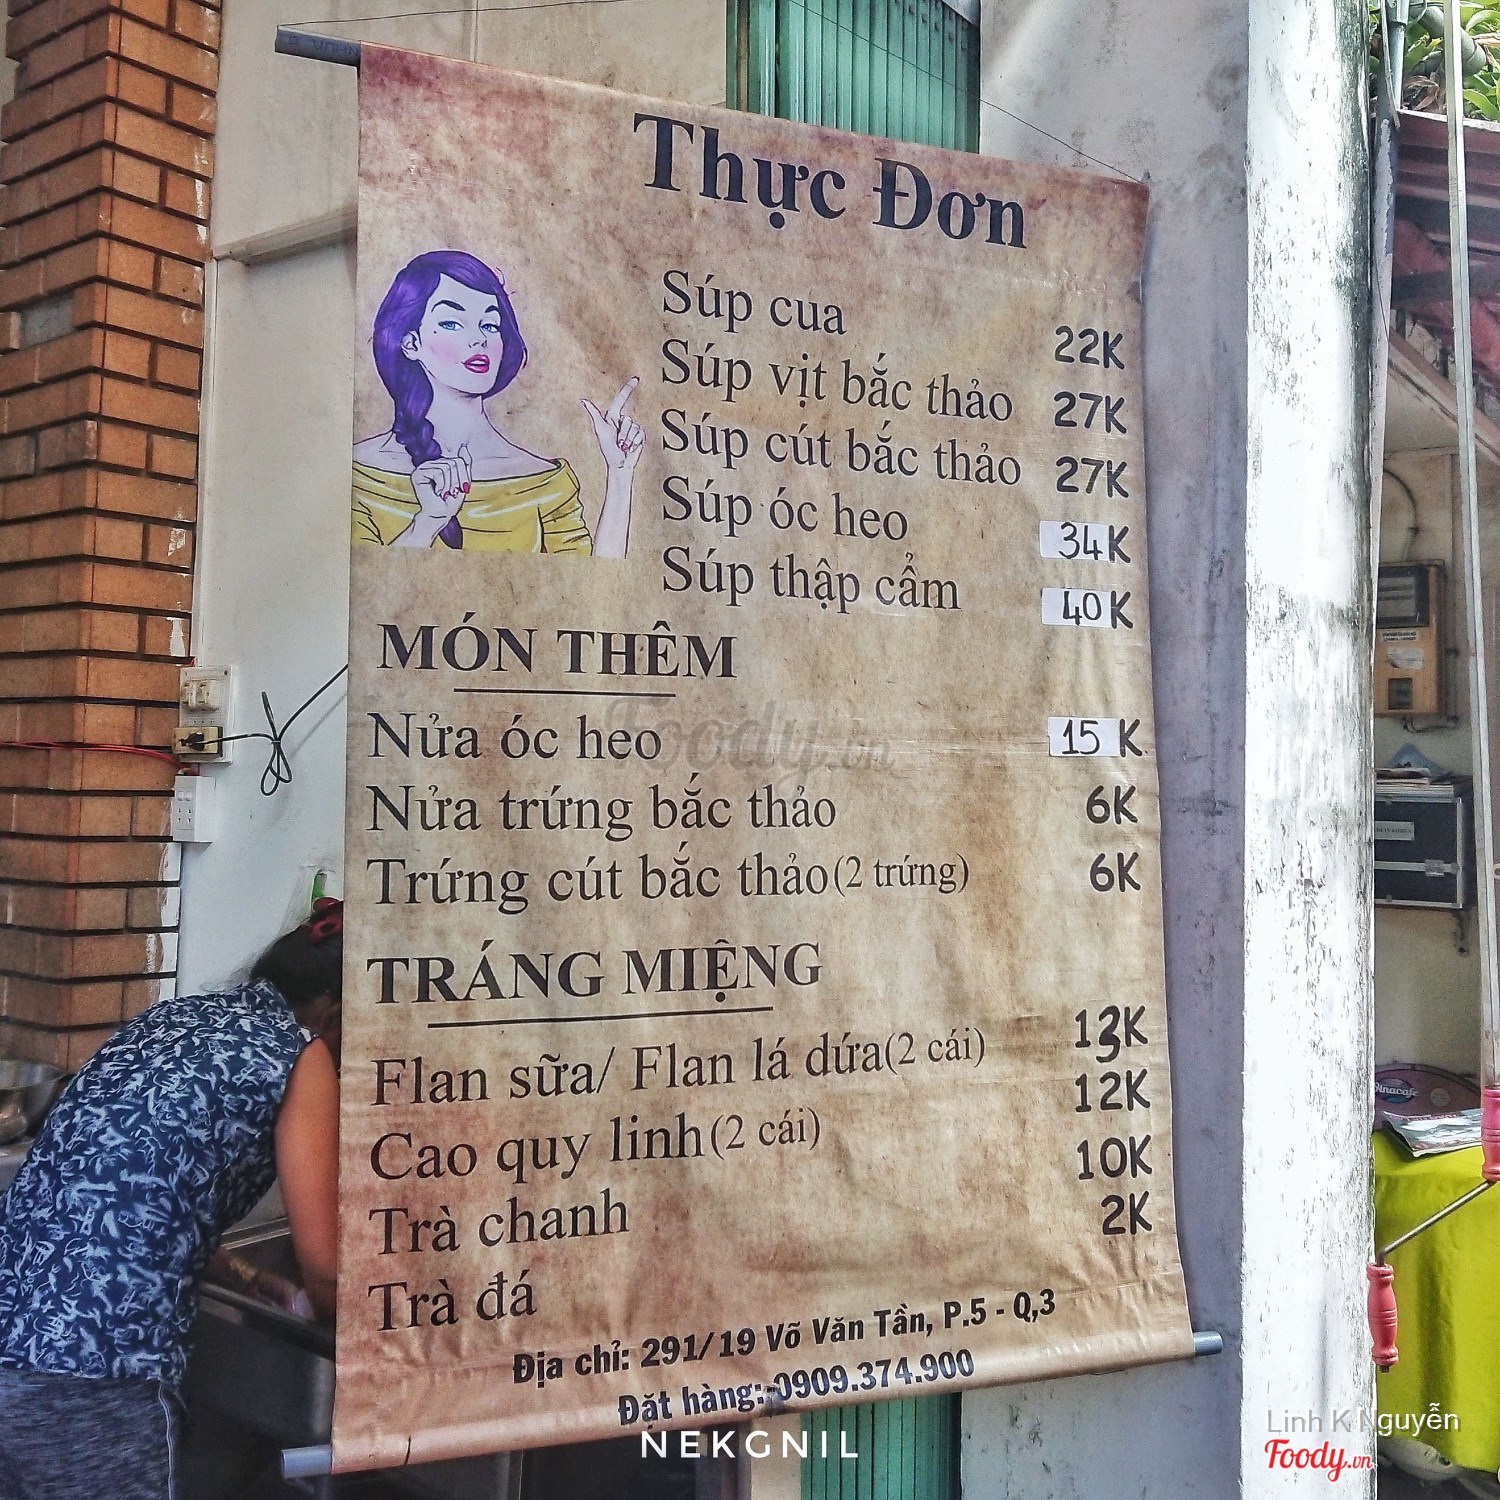 Thực Đơn
Súp cua 22K
Súp vịt bắc thảo 27K
Súp cút bắc thảo 27K
Súp óc heo 34K
Súp thập cẩm 40K
MÓN THÊM
Nửa óc heo 15K
Nửa trứng bắc thảo 6K
Trứng cút bắc thảo(2 trứng) 6K
TRÁNG MIỆNG
Flan sữa/ Flan lá dứa(2 cái) 13K
Cao quy linh(2 cái) 12K
Trà chanh 10K
Trà đá 2K
Địa chỉ: 291/19 Võ Văn Tần, P.5 - Q,3
Đặt hàng: 0909.374.900
Foody.vn
NEKGNIL
Linh K Nguyễn
Foody.vn